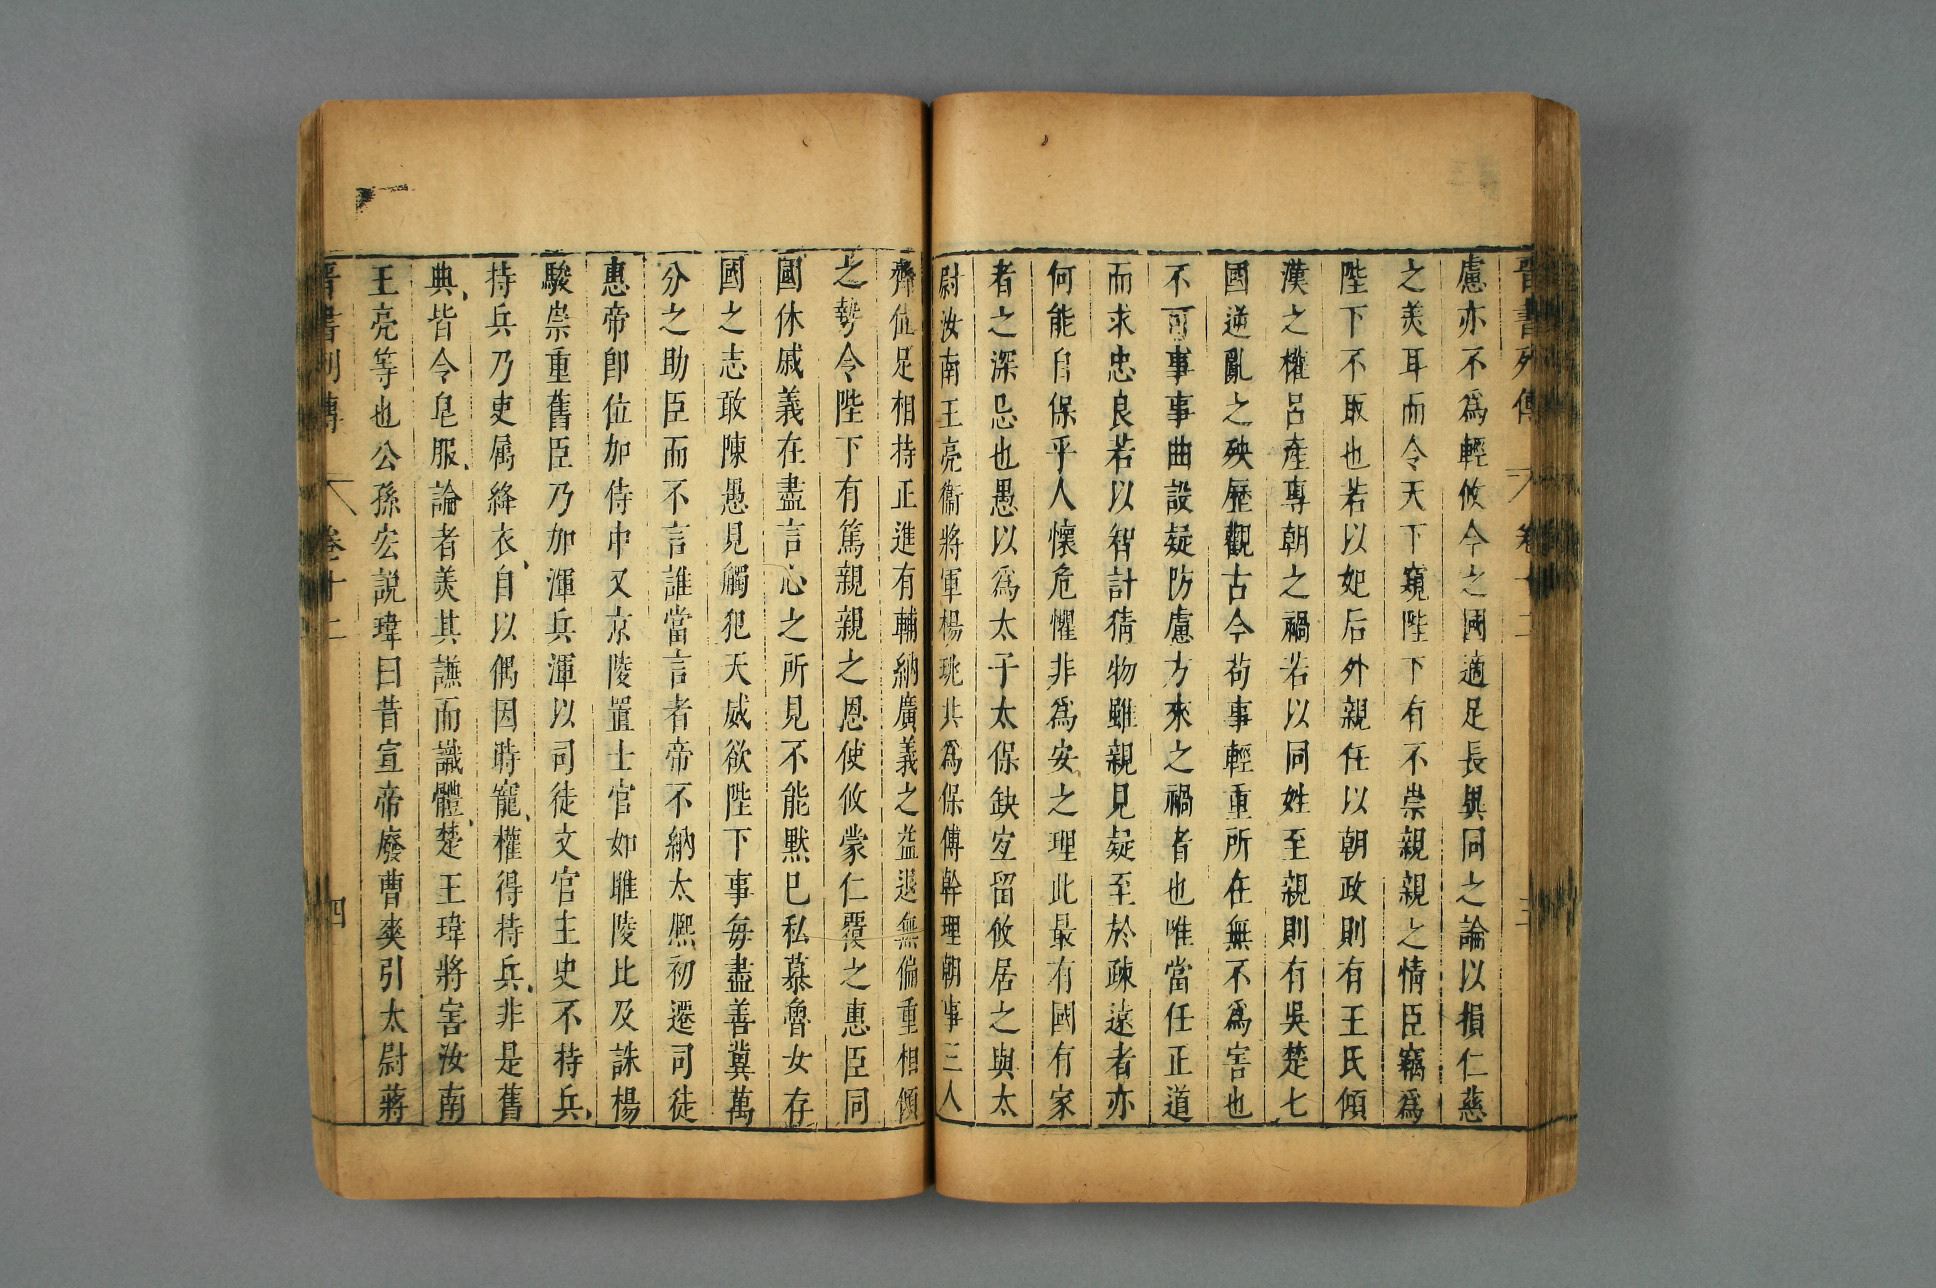 晉書列傳 卷十二 三
慮亦不爲輕攸今之國適足長異同之論以損仁慈
之美耳而令天下窺陛下有不崇親親之情臣竊爲
陛下不取也若以妃后外親任以朝政則有王氏傾
漢之權呂產專朝之禍若以同姓至親則有吳楚七
國逆亂之殃歷觀古今苟事輕重所在無不爲害也
不可事事曲設疑防慮方來之禍者也唯當任正道
而求忠良若以智計猜物雖親見疑至於疎遠者亦
何能自保乎人懷危懼非爲安之理此最有國有家
者之深忌也愚以爲太子太保缺宜留攸居之與太
尉汝南王亮衞將軍楊珧共爲保傅幹理朝事三人
齊位足相持正進有輔納廣義之益退無偏重相傾
之勢令陛下有篤親親之恩使攸蒙仁覆之惠臣同
國休戚義在盡言心之所見不能默已私慕魯女存
國之志敢陳愚見觸犯天威欲陛下事每盡善冀萬
分之助臣而不言誰當言者帝不納太熈初遷司徒
惠帝卽位加侍中又京陵置士官如睢陵比及誅楊
駿崇重舊臣乃加渾兵渾以司徒文官主史不持兵
持兵乃吏属絳衣自以偶因時寵權得持兵非是舊
典皆令皂服論者美其謙而識體楚王瑋將害汝南
王亮等也公孫宏説瑋曰昔宣帝廢曹爽引太尉蔣
晉書列傳 卷十二 四